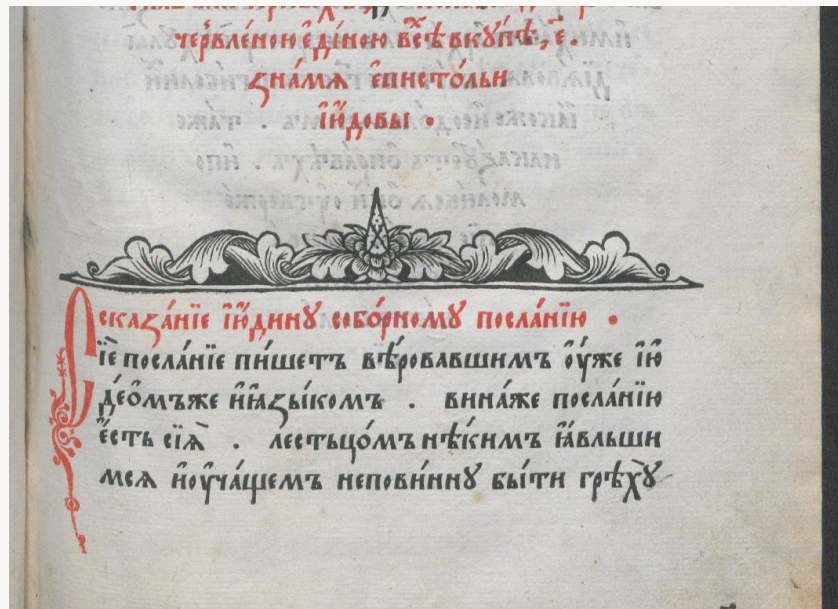 чер҆вле́ною є҆ди́ною всѣ̀ вкꙋ́пѣ,
зна́мѧ є҆пистольи
і҆ю҆довы .
сказа́нїе і҆ю҆динꙋ собо́рномꙋ посла́нїю .
Сїѐ посла́нїе пи́шетъ вѣ́ровавшимъ ᲂу҆́же і҆ю҆
де́ѡмъже и҆ ꙗ҆зы́комъ . вина́же посла́нїю
є҆́сть сїѧ̀ . лестьцо́мъ нѣ́кимъ ꙗ҆́вльши
мсѧ и҆ ᲂу҆ча́щемъ непови́ннꙋ бы́ти грѣхꙋ̀